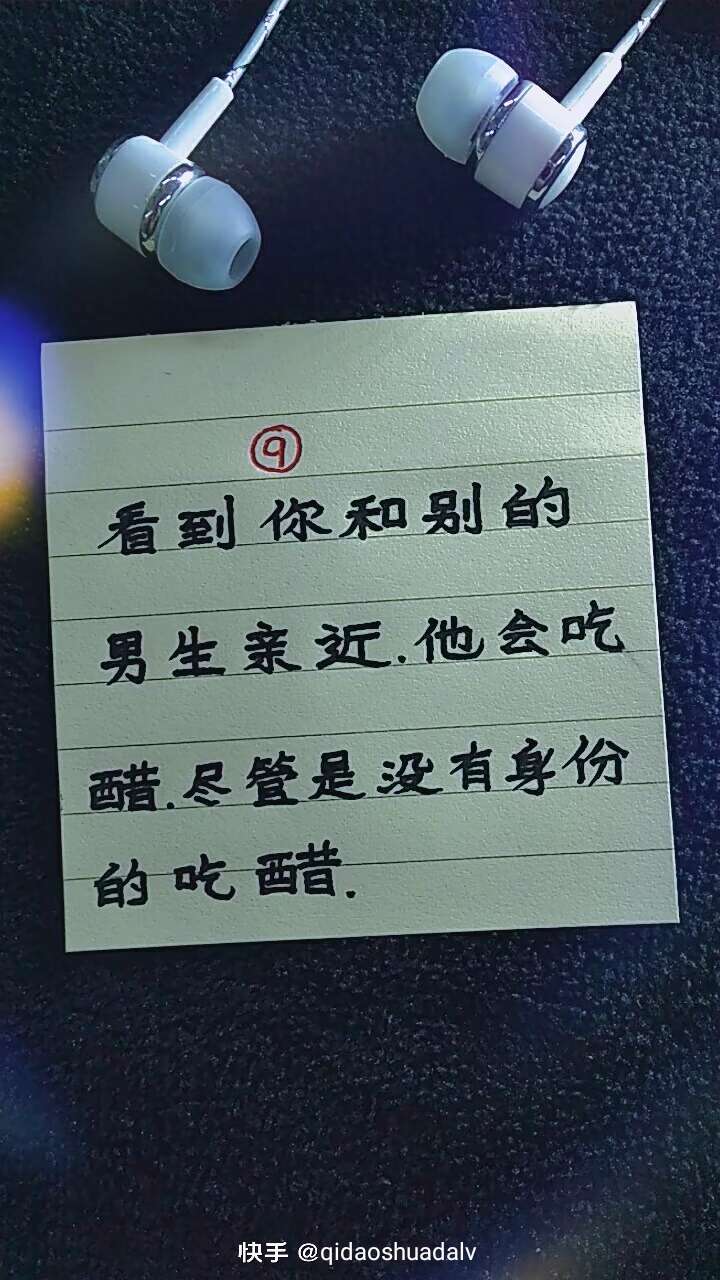 ⑨
看到你和别的
男生亲近.他会吃
醋.尽管是没有身份
的吃醋.
快手 @qidaoshuadalv